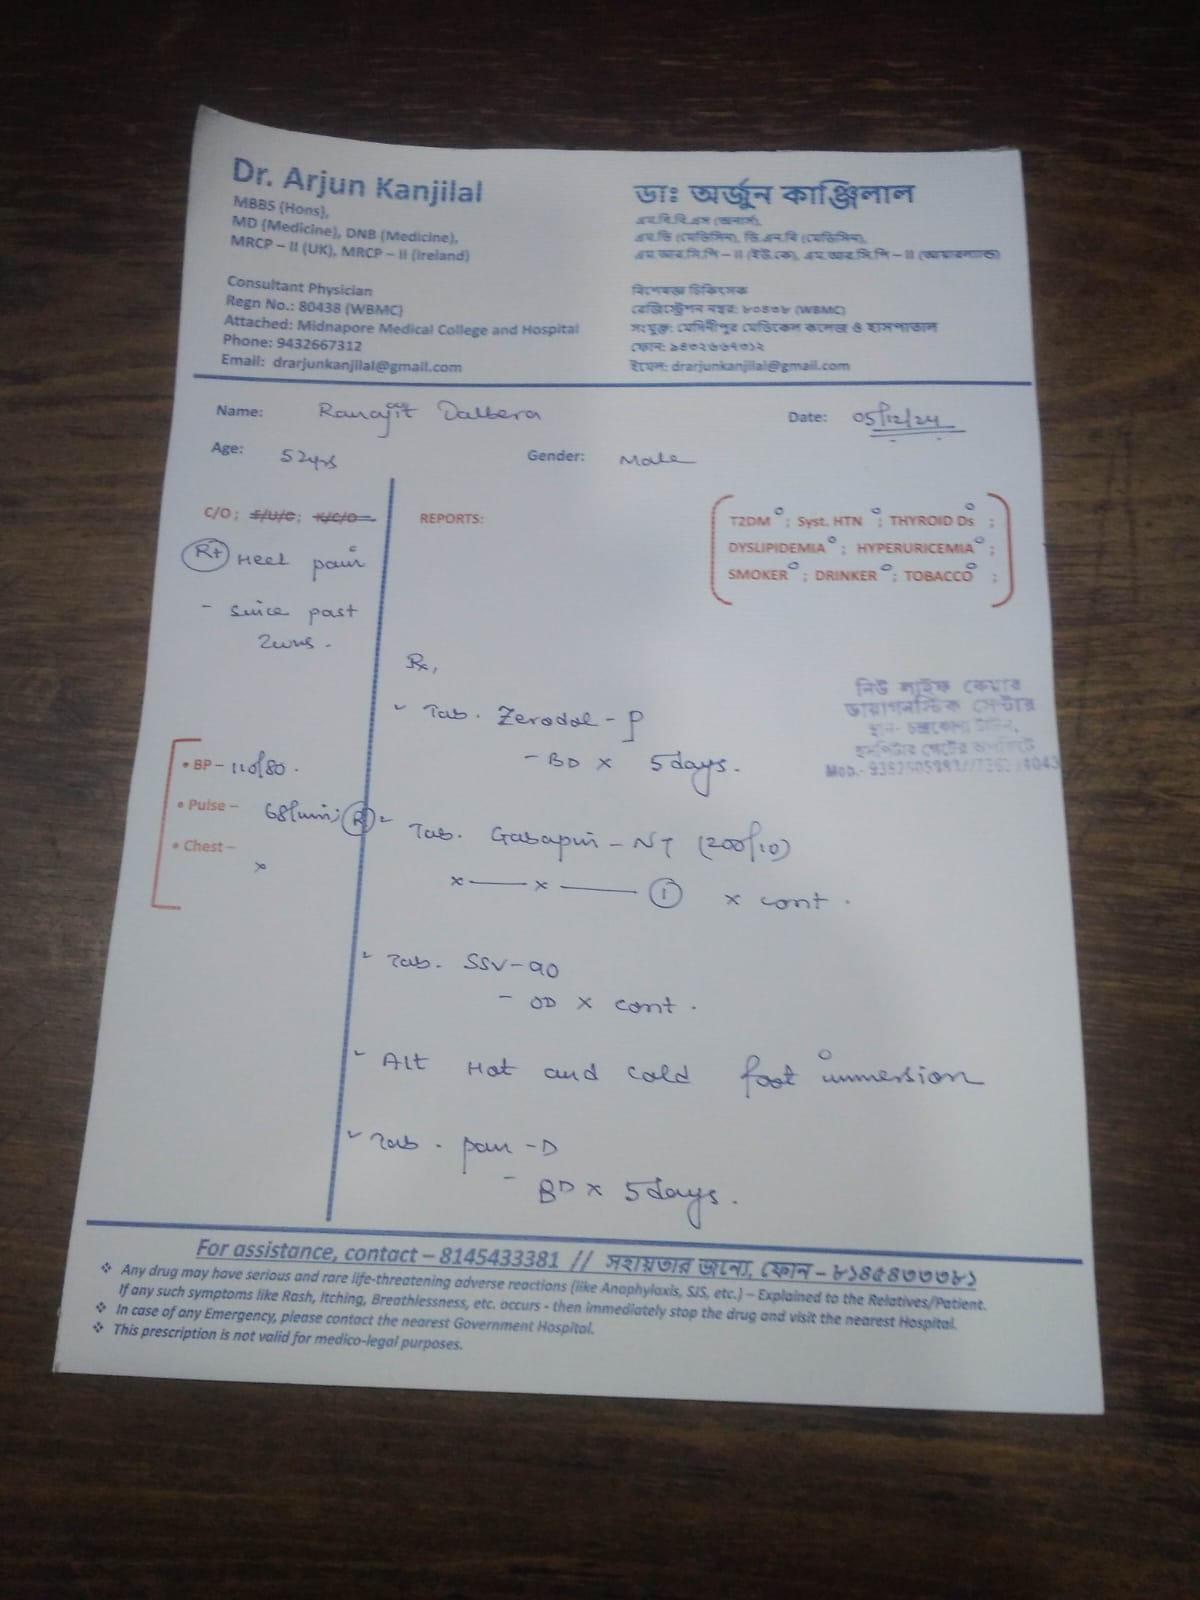 Dr. Arjun Kanjilal
MBBS (Hons),
MD (Medicine), DNB (Medicine),
MRCP – II (UK), MRCP – II (Ireland)
Consultant Physician
Regn No.: 80438 (WBMC)
Attached: Midnapore Medical College and Hospital
Phone: 9432667312
Email: drarjunkanjilal@gmail.com
ডাঃ অর্জুন কাঞ্জিলাল
এম.বি.বি.এস (অনার্স),
এম.ডি (মেডিসিন), ডি.এন.বি (মেডিসিন),
এম.আর.সি.পি – II (ইউ.কে), এম.আর.সি.পি – II (আয়ারল্যান্ড)
বিশেষজ্ঞ চিকিৎসক
রেজিস্ট্রেশন নম্বর: ৮০৪৩৮ (WBMC)
সংযুক্ত: মেদিনীপুর মেডিকেল কলেজ ও হাসপাতাল
ফোন: ৯৪৩২৬৬৭৩১২
ইমেল: drarjunkanjilal@gmail.com
Name: Ranajit Dalbera Date: 05/12/24
Age: 52yrs Gender: Male
C/O; F/U/C; K/C/O
REPORTS:
T2DM ; Syst. HTN ; THYROID Ds ;
DYSLIPIDEMIA ; HYPERURICEMIA ;
SMOKER ; DRINKER ; TOBACCO ;
Rt Heel pain
- since past
BP – 110/80.
Pulse – 68/min; R
Chest – x
Rx,
Tab. Zerodol - P
- BD x 5 days.
Tab. Gabapin - NT (200/10)
x — x — 1 x cont.
Tab. SSV-90
- OD x cont.
Alt Hot and cold foot immersion
Tab. Pan - D
- BD x 5 days.
নিউ লাইফ কেয়ার
ডায়াগনস্টিক সেন্টার
Mob.-
For assistance, contact – 8145433381 // সহায়তার জন্যে, ফোন – ৮১৪৫৪৩৩৩৮১
Any drug may have serious and rare life-threatening adverse reactions (like Anaphylaxis, SJS, etc.) – Explained to the Relatives/Patient.
If any such symptoms like Rash, Itching, Breathlessness, etc. occurs - then immediately stop the drug and visit the nearest Hospital.
In case of any Emergency, please contact the nearest Government Hospital.
This prescription is not valid for medico-legal purposes.